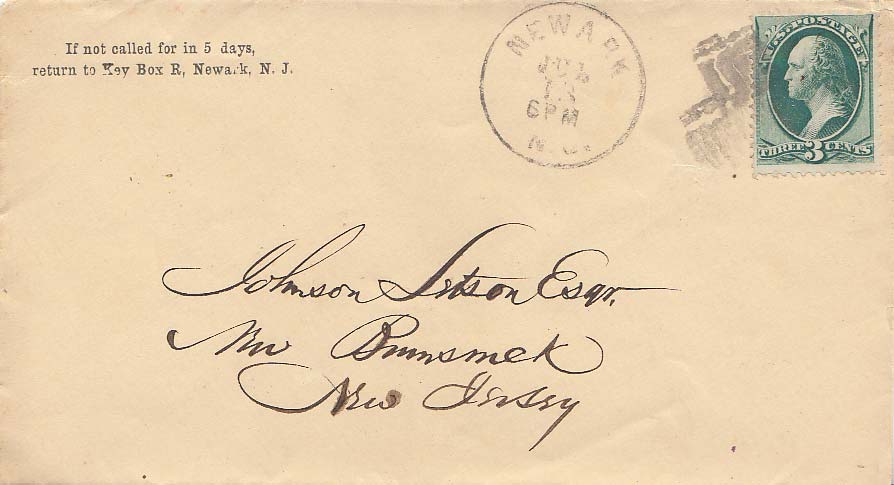 If not called for in 5 days,
return to Key Box R, Newark, N. J.
NEWARK
JUL
6PM
N.J.
U.S. POSTAGE
THREE 3 CENTS
Johnson Letson Esqr.
New Brunswick
New Jersey